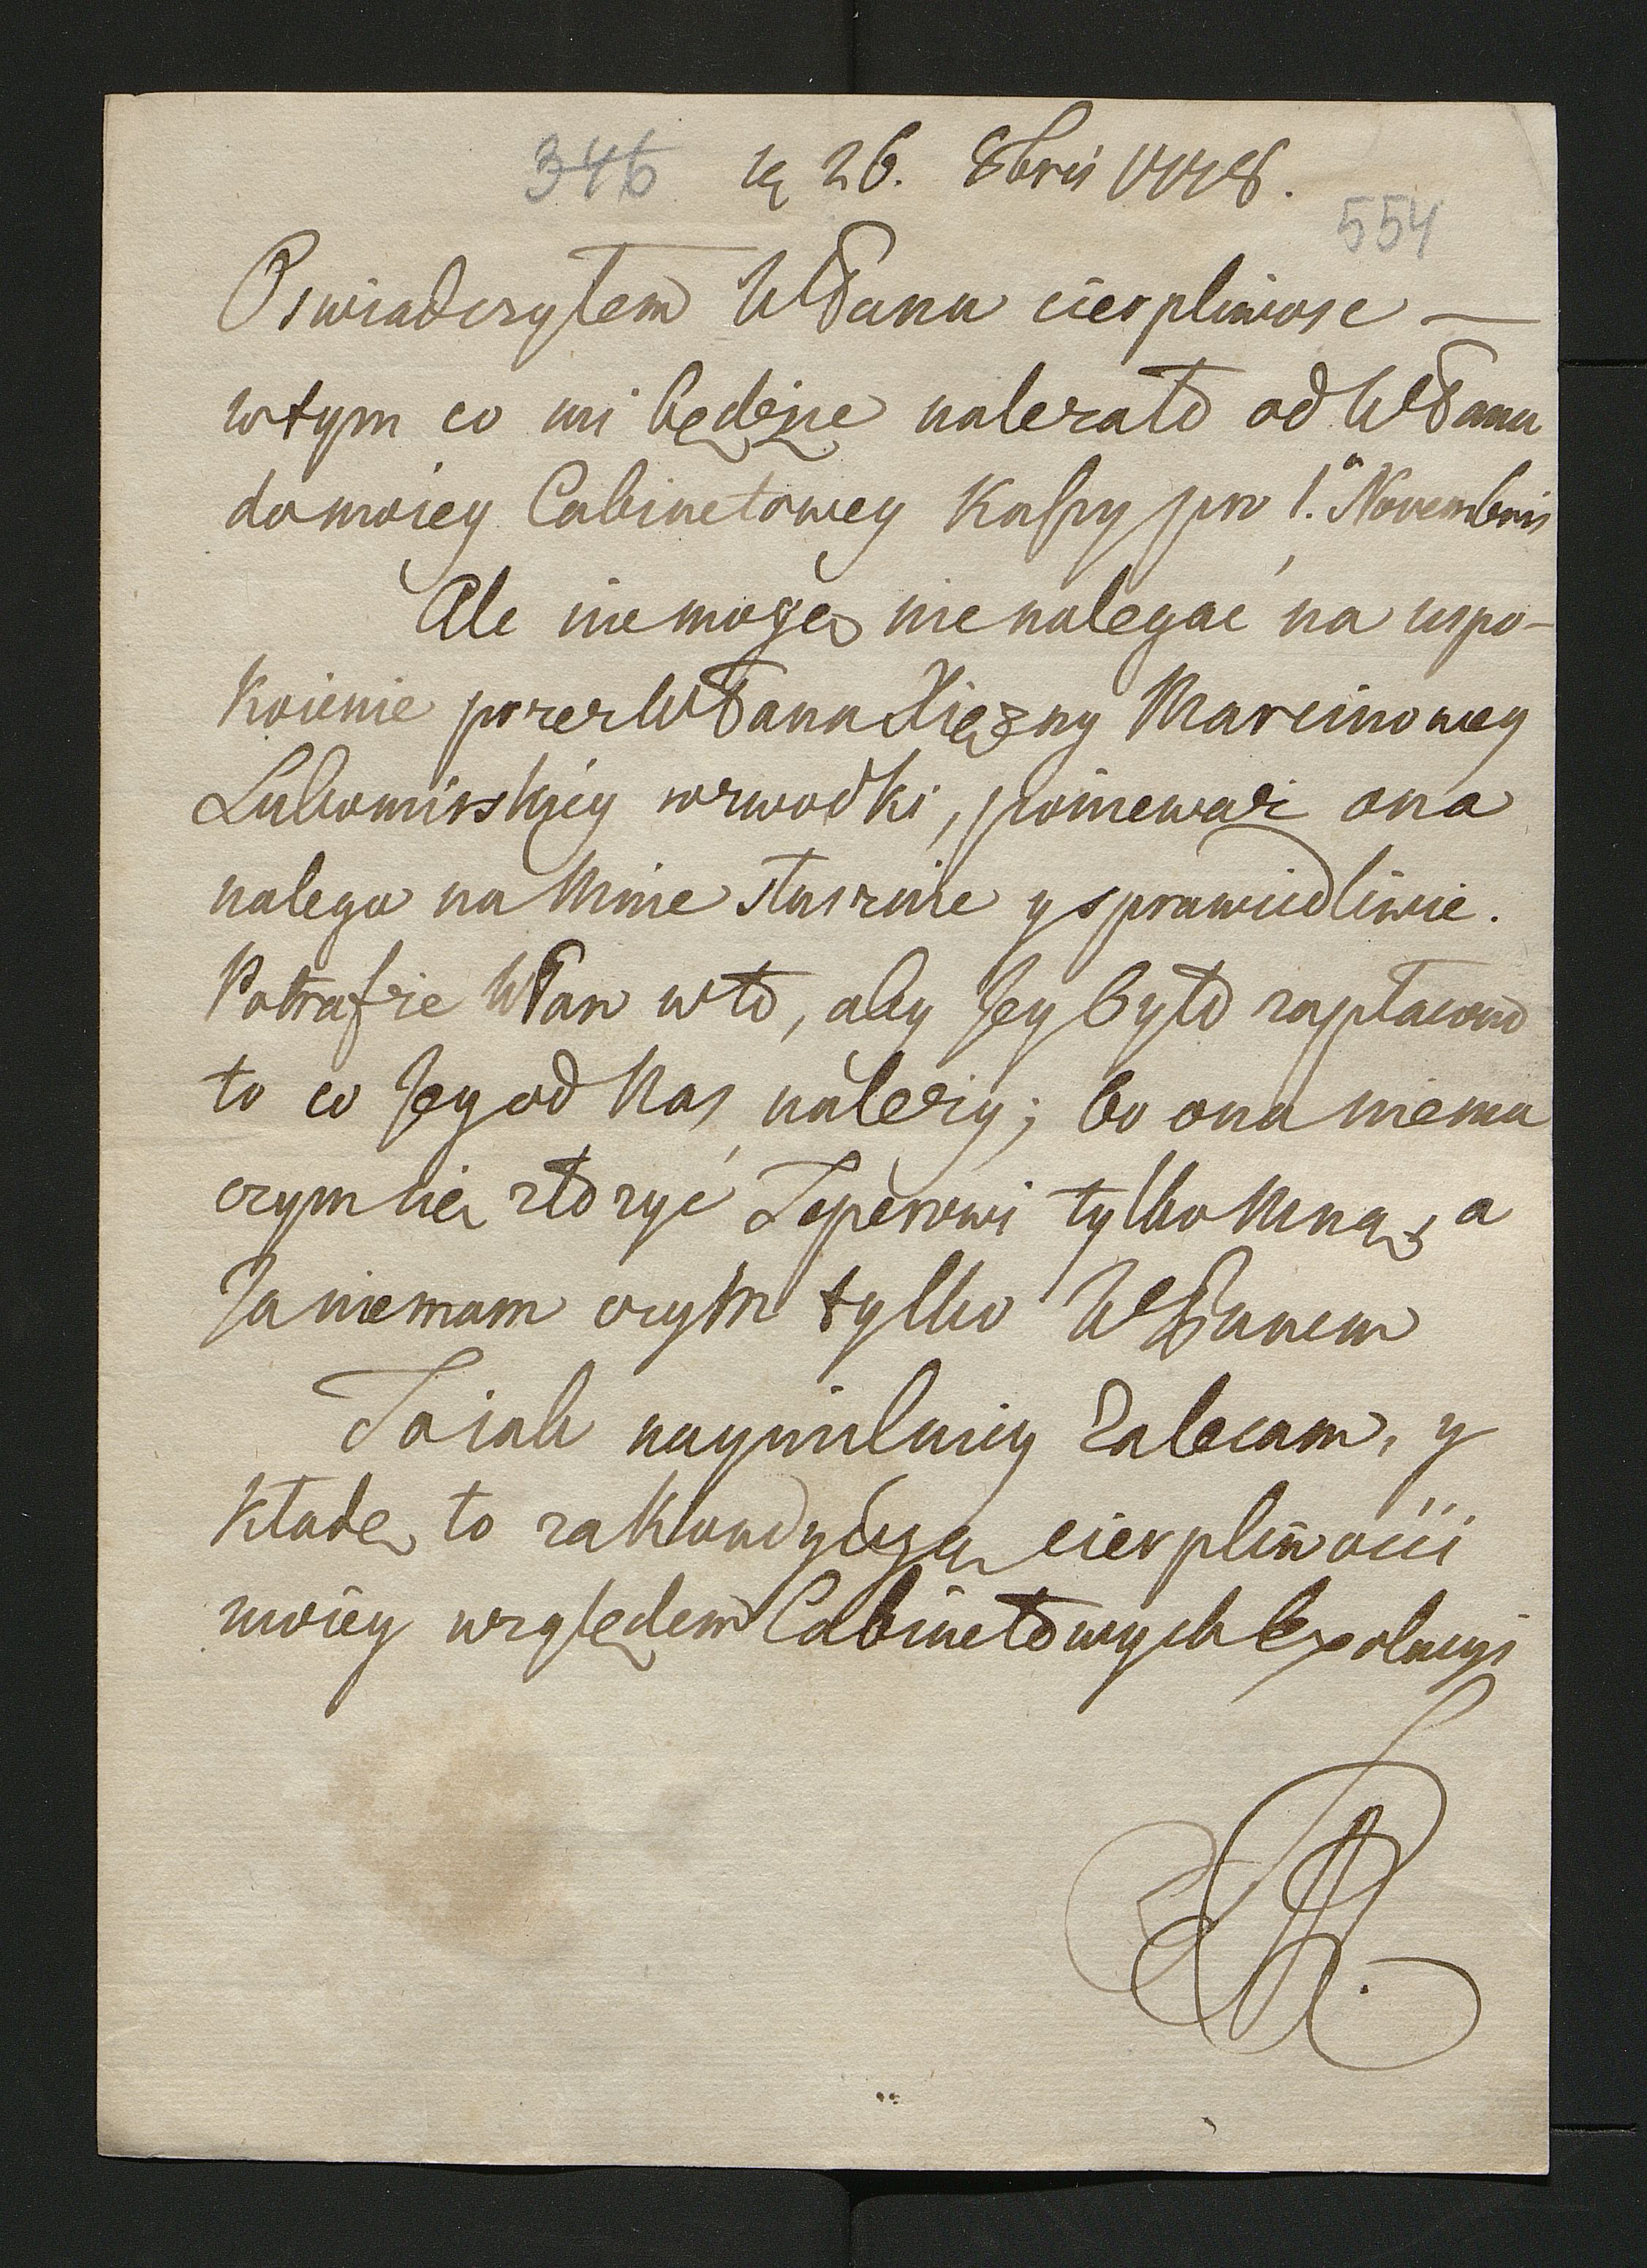 346 le 26. 8bris 1778.
554
Oswiadczyłem WPanu cierpliwosc —
w tym co mi będzie nalezało od WPana
do moiey Cabinetowey Kassy pro 1.ª Novembris
Ale nie mogę nie nalegac na uspo-
koienie przez WPana Xięzny Marcinowey
Lubomirskiey wzwodki, poniewaz ona
nalega na Mnie słusznie y sprawiedliwie.
Potrafze WPan w to, aby Jey było zapłacono
to co Jey od Nas nalezy; bo ona niema
czym się złozyć Teperowi tylko Mną, a
Ja niemam czym tylko WPanem
To iak naypilniey Zalecam, y
kładę to za Kondycyą cierpliwosci
moiey względem Cabinetowych
SAR.